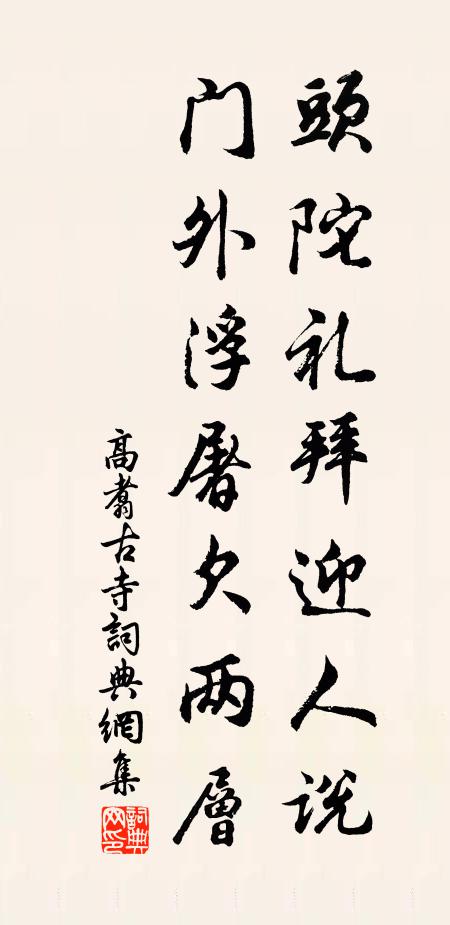 頭陀礼拜迎人説
门外浮屠欠两層
高翥古寺詞典網集
詞典网印